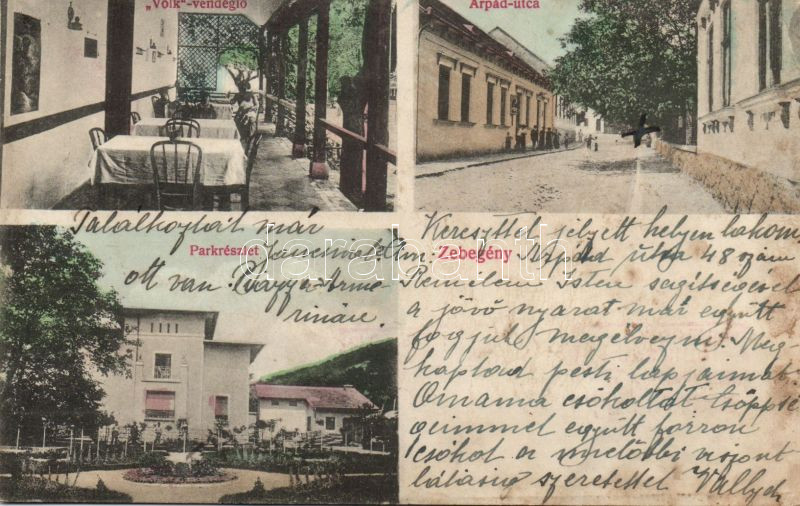 „Volk"-vendéglő
Árpád-utca
Találkoztál már
Parkrészlet
ott van
Zebegény
Kereszttel jelyett helyen lakom
Árpád utca 48 szám
Remélem Isten segitségével
a jövő nyarat már együtt
fogjuk megélvezni. Meg-
kaptad pesti lapjaimat.
Omama csókoltat csöppsé
geimmel együtt forron
csókol a mielőbbi viszont
látásig szeretettel
darabanth